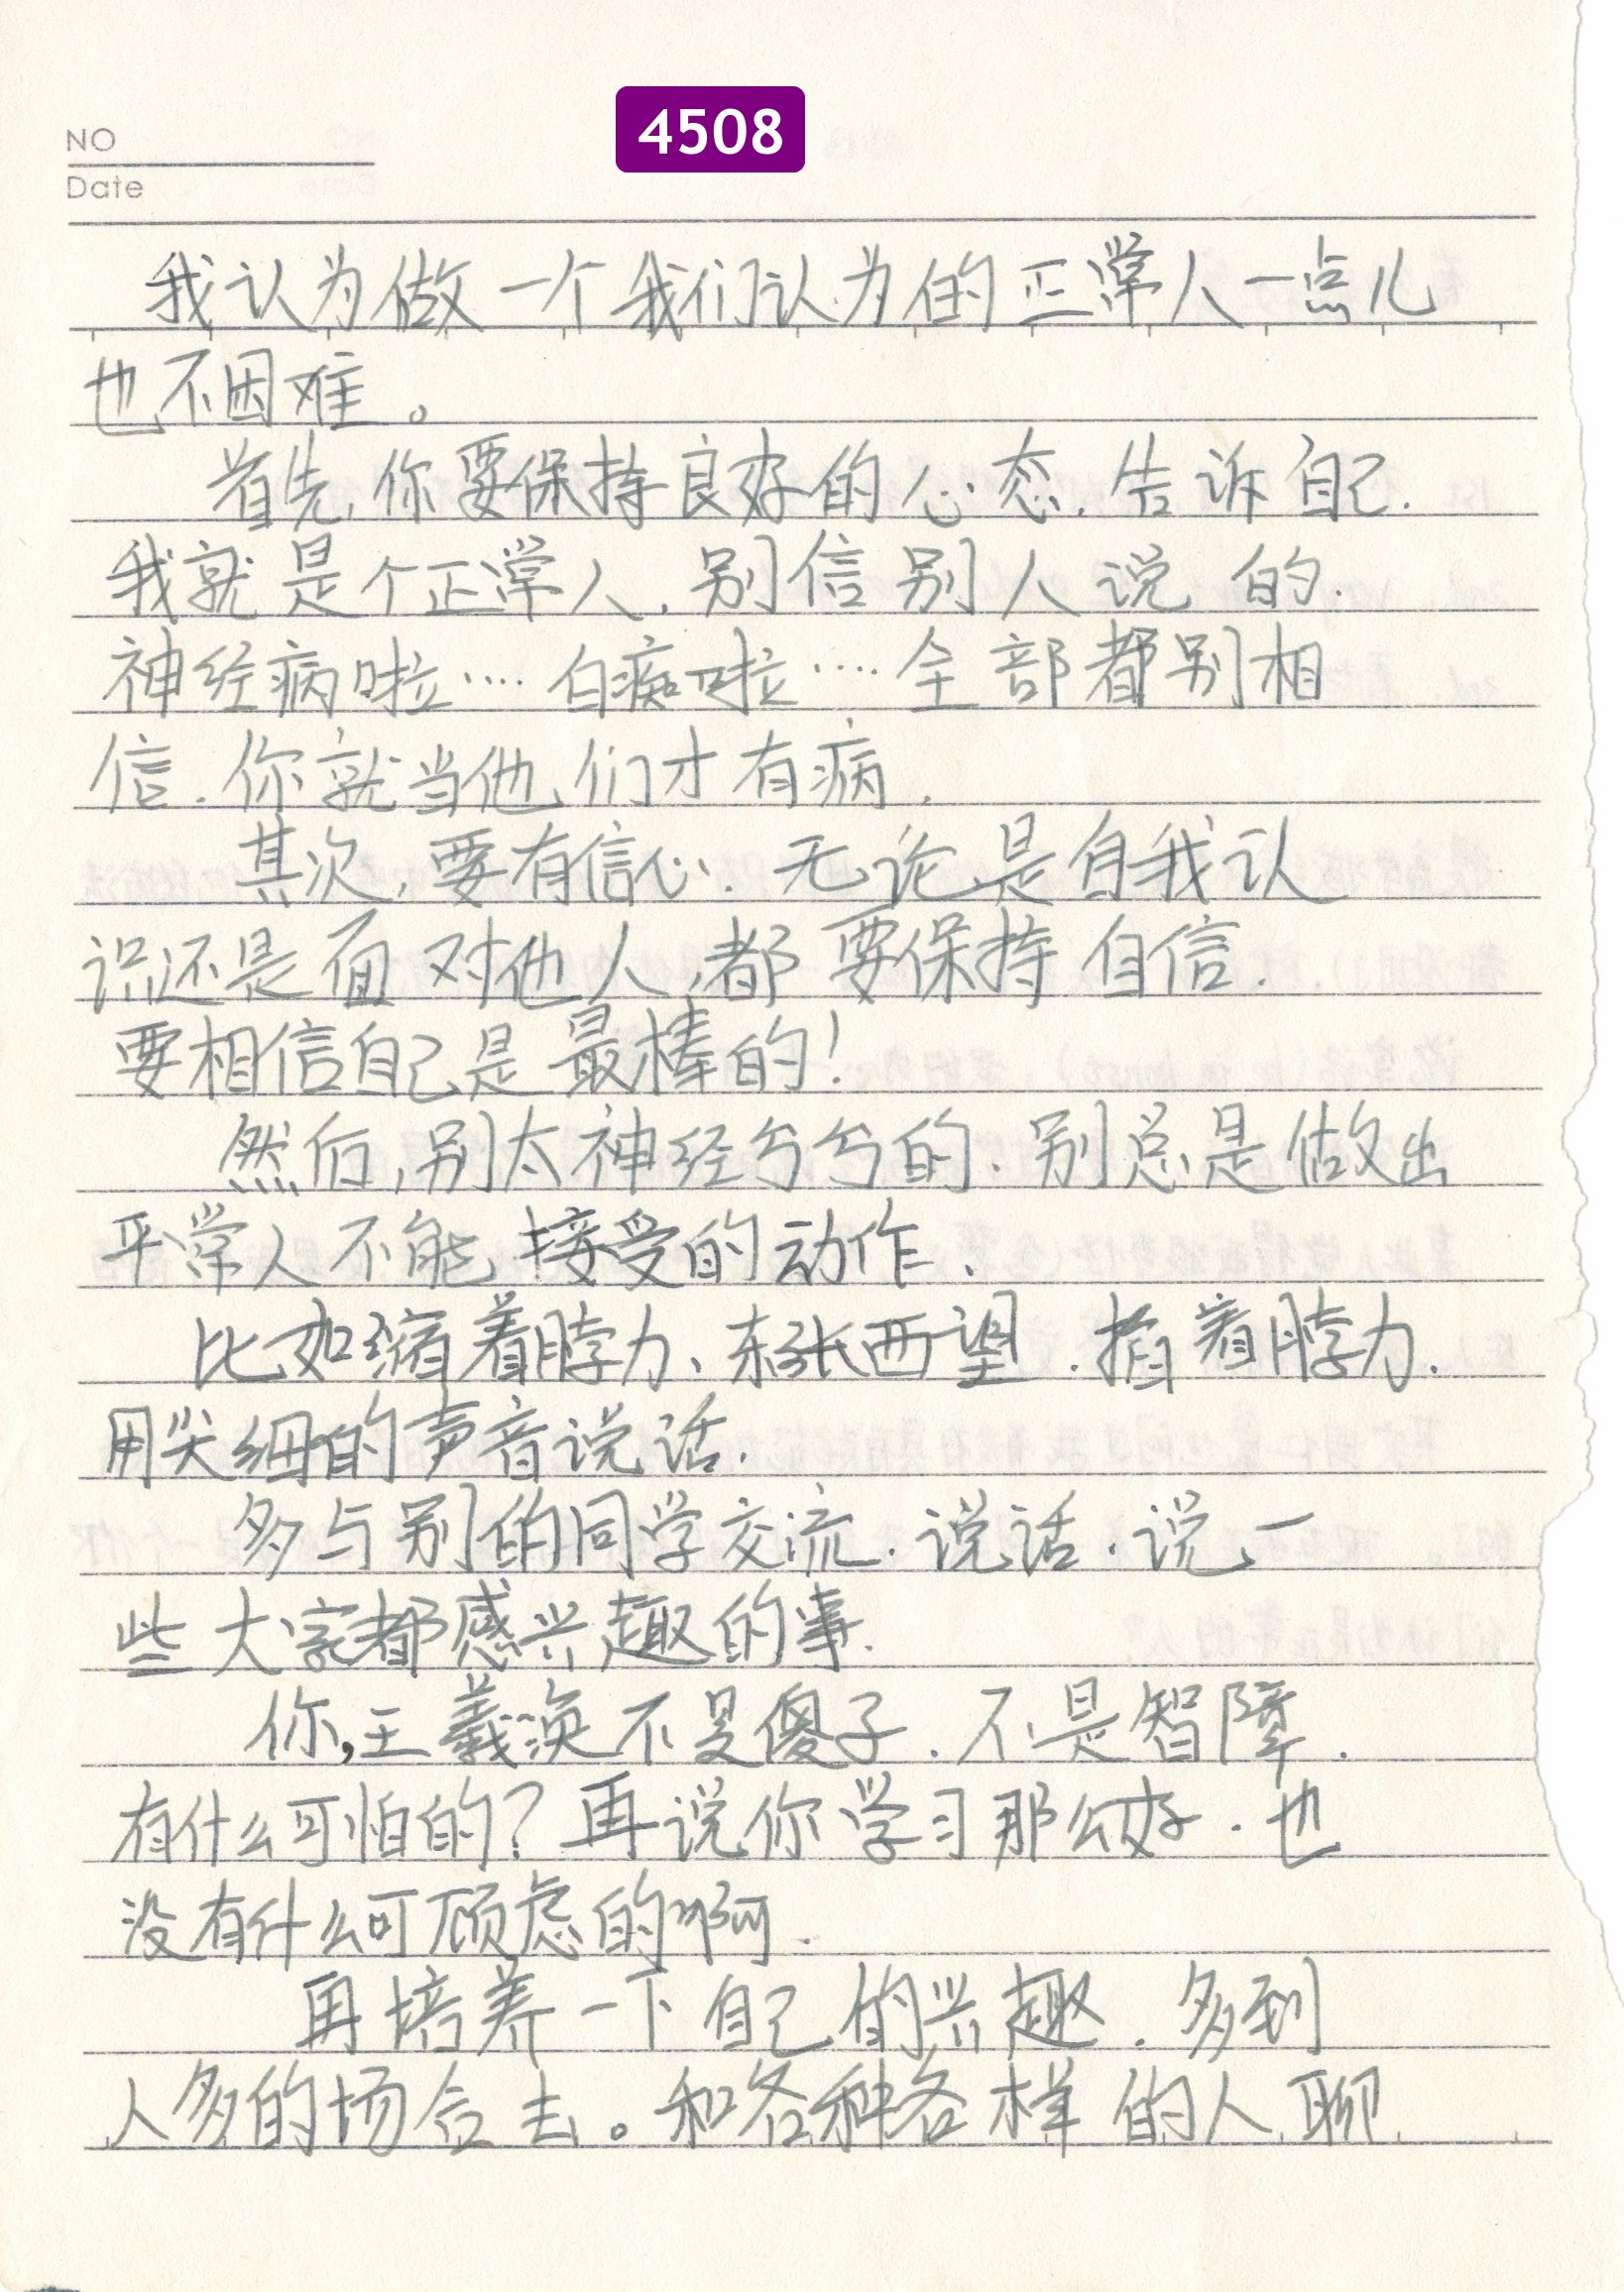 4508
NO
Date
我认为做一个我们认为的正常人一点儿
也不困难。
首先,你要保持良好的心态.告诉自己.
我就是个正常人.别信别人说的.
神经病啦····白痴啦····全部都别相
信.你就当他们才有病.
其次,要有信心.无论是自我认
识还是面对他人,都要保持自信.
要相信自己是最棒的!
然后,别太神经兮兮的.别总是做出
平常人不能接受的动作.
比如缩着脖力、东张西望.掐着脖力.
用尖细的声音说话.
多与别的同学交流.说话.说一
些大家都感兴趣的事.
你,王羲涣不是傻子.不是智障.
有什么可怕的?再说你学习那么好.也
没有什么可顾虑的啊.
再培养一下自己的兴趣.多到
人多的场合去。和各种各样的人聊